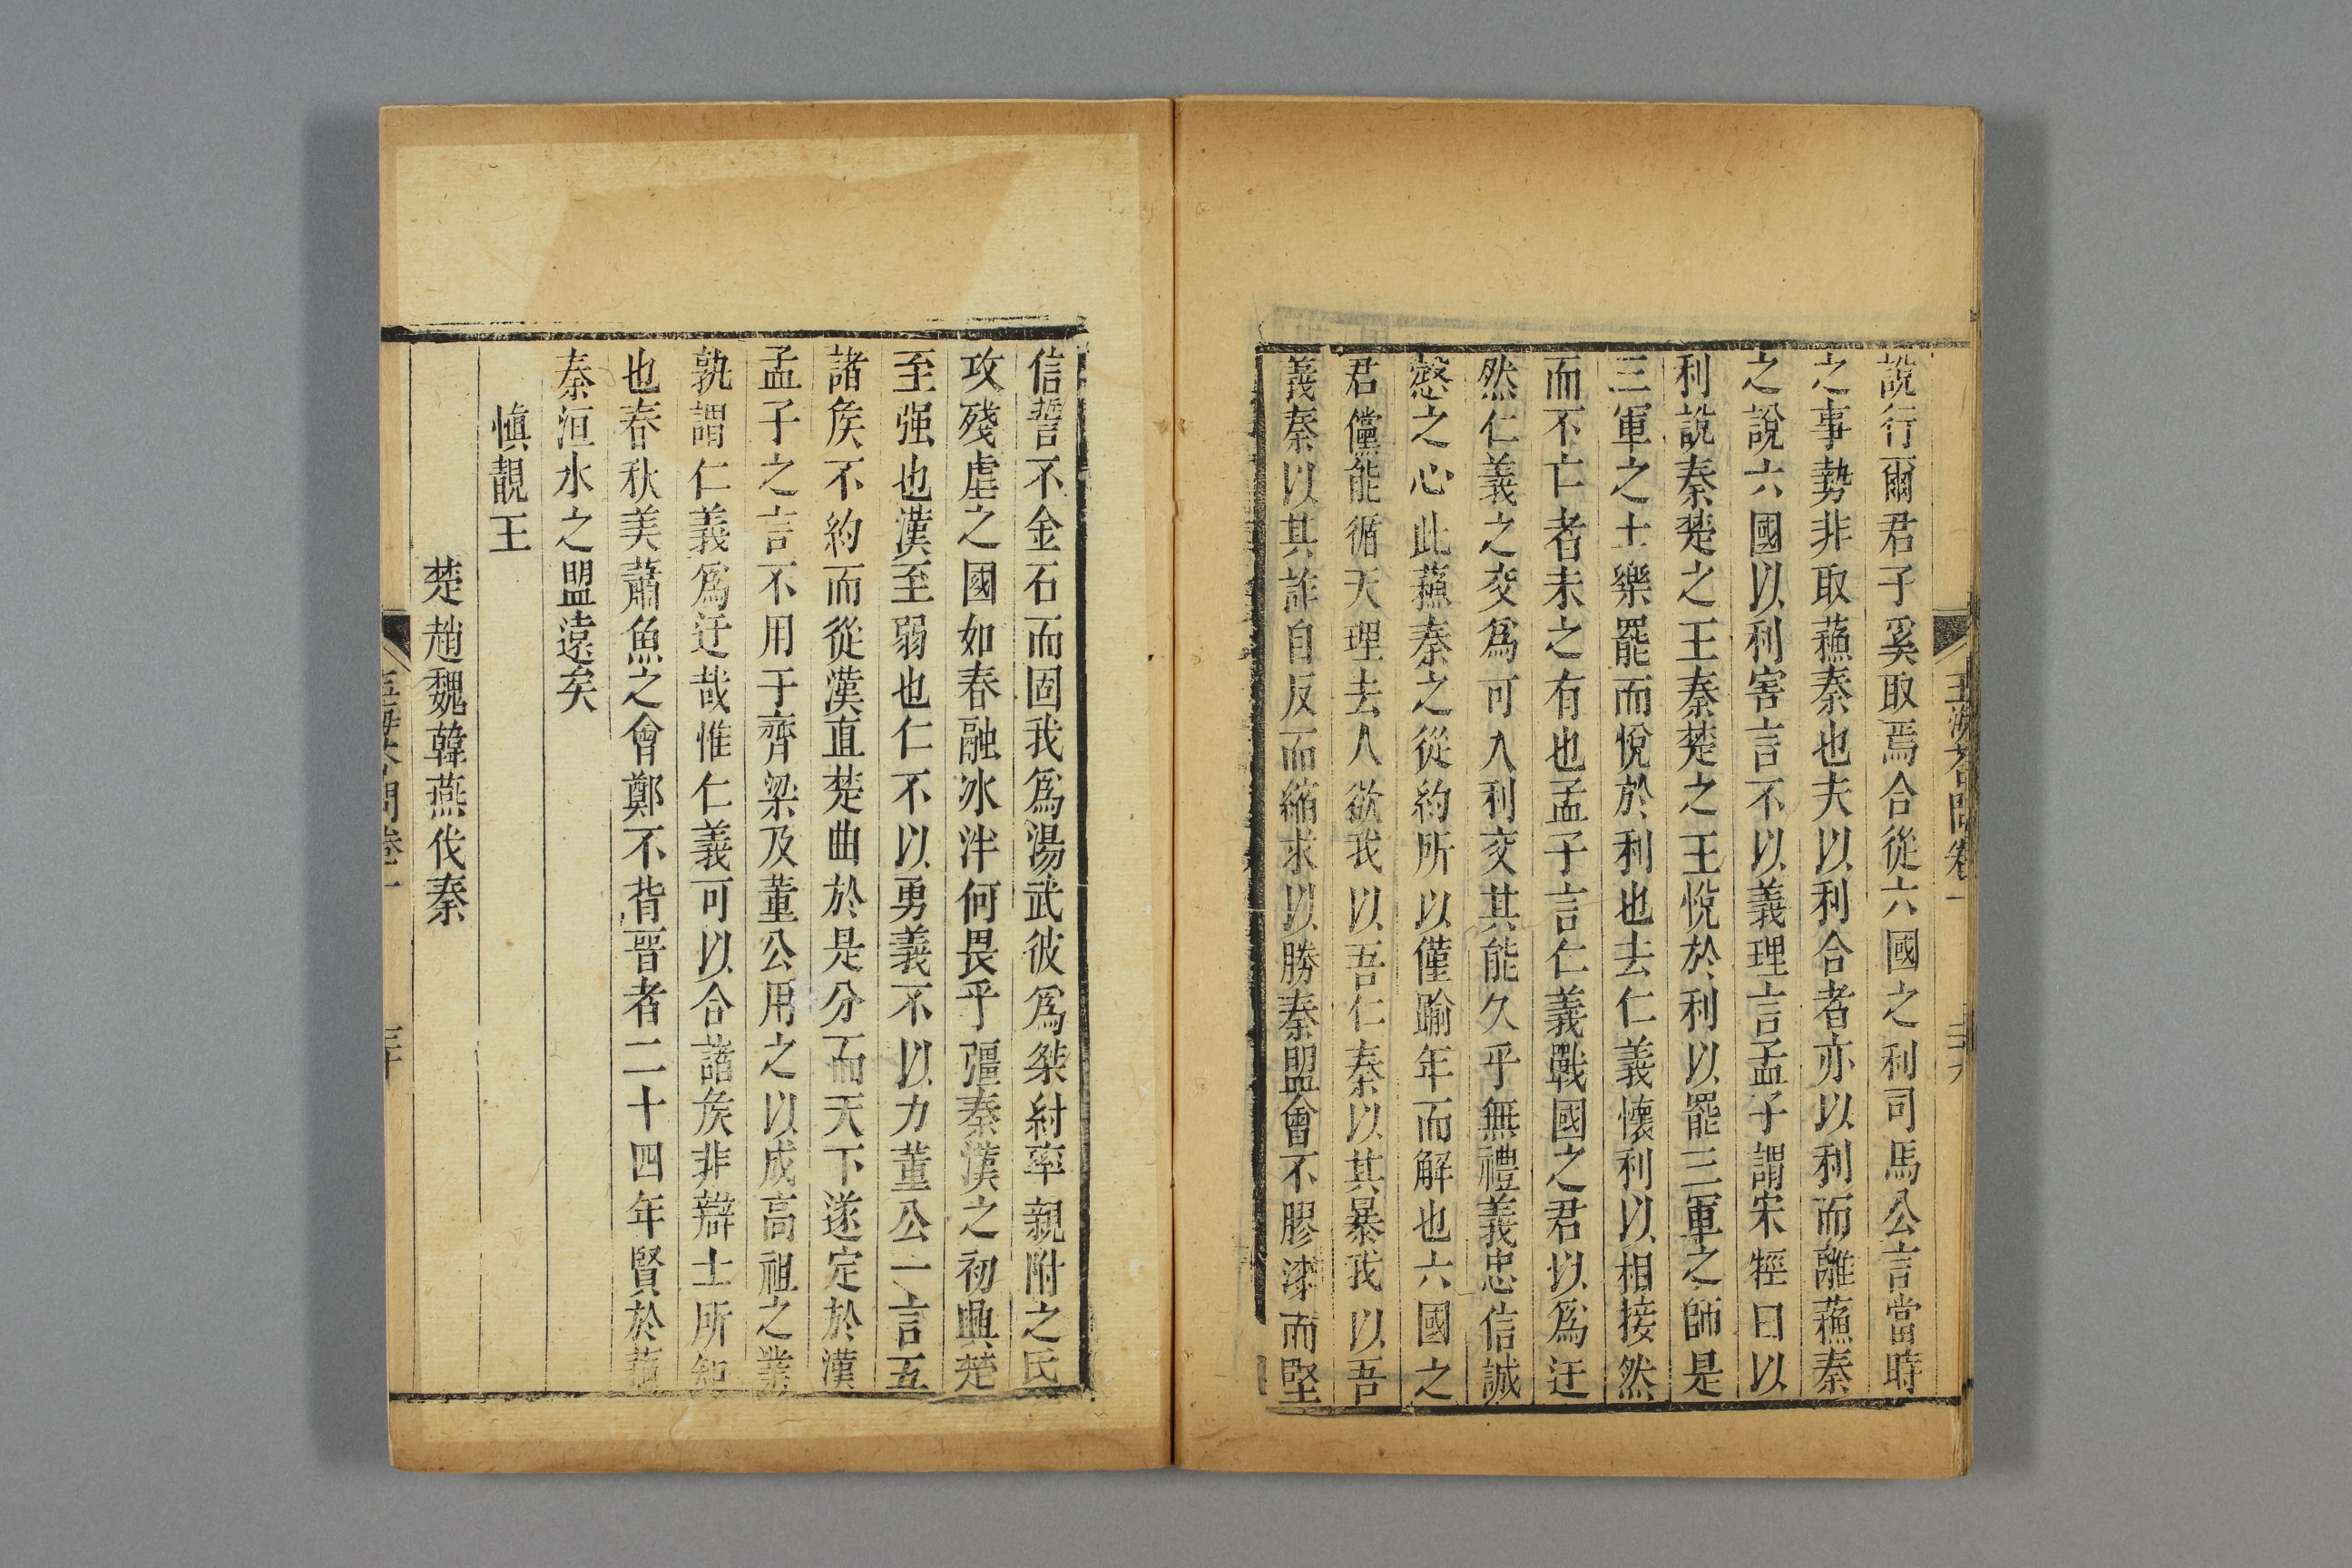 玉海荅問卷一
二十九
說行爾君子奚取焉合從六國之利司馬公言當時
之事勢非取蘓秦也夫以利合者亦以利而離蘓秦
之說六國以利害言不以義理言孟子謂宋牼曰以
利說秦楚之王秦楚之王悅於利以罷三軍之師是
三軍之士樂罷而悅於利也去仁義懷利以相接然
而不亡者未之有也孟子言仁義戰國之君以爲迂
然仁義之交爲可久利交其能久乎無禮義忠信誠
慤之心此蘓秦之從約所以僅踰年而解也六國之
君儻能循天理去人欲我以吾仁秦以其暴我以吾
義秦以其詐自反而縮求以勝秦盟會不膠漆而堅
信誓不金石而固我爲湯武彼爲桀紂率親附之民
攻殘虐之國如春融冰泮何畏乎彊秦漢之初興楚
至强也漢至弱也仁不以勇義不以力董公一言五
諸矦不約而從漢直楚曲於是分而天下遂定於漢
孟子之言不用于齊梁及董公用之以成高祖之業
孰謂仁義爲迂哉惟仁義可以合諸矦非辯士所知
也春秋美蕭魚之會鄭不背晉者二十四年賢於蘓
秦洹水之盟遠矣
愼靚王
楚趙魏韓燕伐秦
卷一
三十